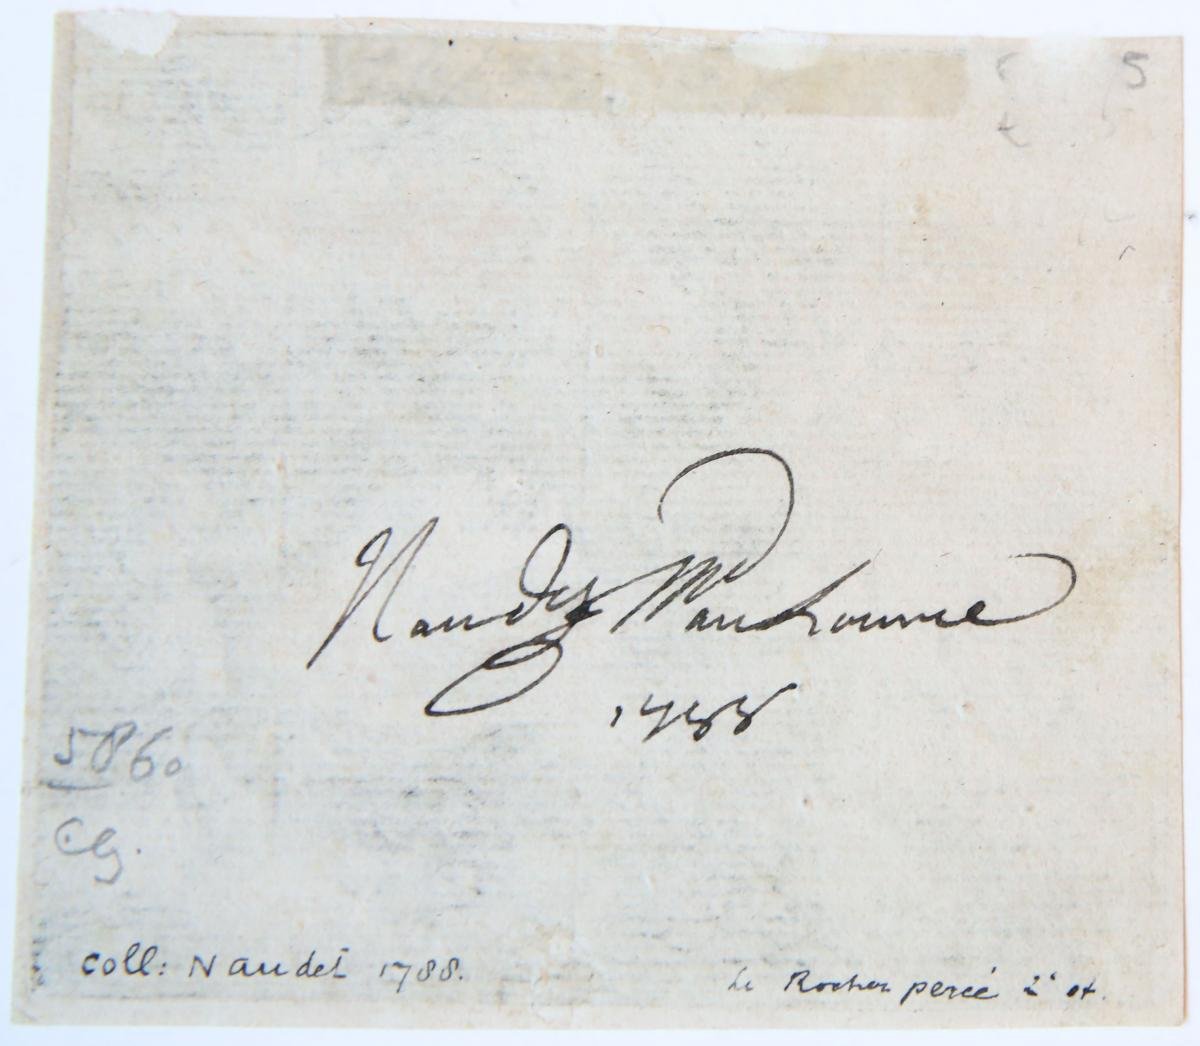 5
Naudet Md au Louvre
1788
5860
coll: Naudet 1788.
Le Rocher percé 2e et.